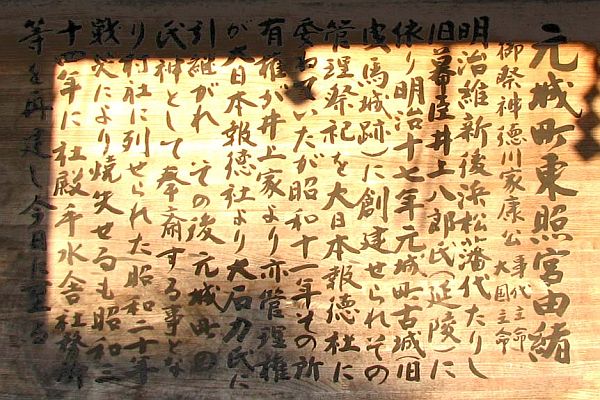 元城町東照宮由緒
御祭神徳川家康公 事代主命 大国主命
明治維新後浜松藩代たりし
旧幕臣井上八郎氏(延陵)に
依り明治十七年元城町古城(旧
曳馬城跡)に創建せられその
管理祭祀を大日本報徳社に
委ねていたが昭和十一年その所
有権が井上家より亦管理権
が大日本報徳社より大石力氏に
引継がれその後元城町の
氏神として奉斎する事とな
り村社に列せられた昭和二十年
戦災により焼失せるも昭和三
十四年に社殿手水舎社務所
等を再建し今日に至る